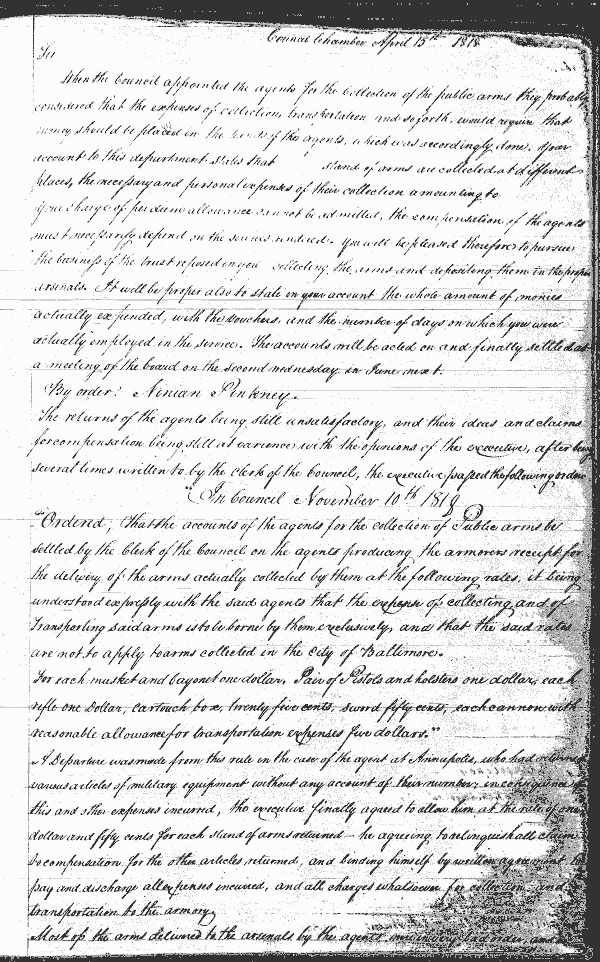 Council Chamber April 15th 1818
Sir
When the Council appointed the agents for the collection of the public arms they probably
considered that the expenses of collection, transportation and so forth, would require that
money should be placed in the hands of the agents, which was accordingly done. Your
account to this department states that stand of arms are collected at different
places, the necessary and personal expenses of their collection amounting to
if a charge of per diem allowance can not be admitted, the compensation of the agents
must necessarily depend on the services rendered. You will be pleased therefore to pursue
the business of the trust reposed in you collecting the arms and depositing them in the proper
arsenals. It will be proper also to state in your account the whole amount of monies
actually expended, with the vouchers, and the number of days on which you were
actually employed in the service. The accounts will be acted on and finally settled at
a meeting of the board on the second wednesday in June next.
By order: Ninian Pinkney.
The returns of the agents being still unsatisfactory, and their ideas and claims
for compensation being still at varience with the opinions of the executive, after being
several times written to by the clerk of the Council, the executive passed the following order
"In Council November 10th 1819
"Ordered, That the accounts of the agents for the collection of Public arms be
settled by the Clerk of the Council on the agents producing the armorers receipt for
the delivery of the arms actually collected by them at the following rates, it being
understood expressly with the said agents that the expense of collecting and of
Transporting said arms is to be borne by them exclusively, and that the said rates
are not to apply to arms collected in the city of Baltimore.
For each musket and bayonet one dollar, Pair of Pistols and holsters one dollar, each
rifle one Dollar, cartouch box, twenty five cents, sword fifty cents, each cannon with
reasonable allowance for transportation expenses five dollars."
A Departure was made from this rule in the case of the agent at Annapolis, who had returned
various articles of military equipment without any account of their number; in consequence of
this and other expenses incurred, the executive finally agreed to allow him at the rate of one
dollar and fifty cents for each stand of arms returned – he agreeing to relinquish all claim
to compensation for the other articles returned, and binding himself by written agreement to
pay and discharge all expenses incurred, and all charges whatsoever for collection and
transportation to the armory.
Most of the arms delivered to the arsenals by the agents, were in very bad order, and